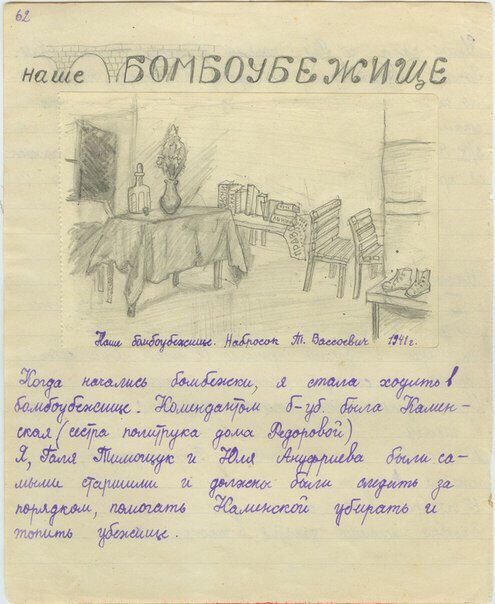 62
наше БОМБОУБЕЖИЩЕ
ПРАВДА
Наше бомбоубежище. Набросок Т. Вассоевич 1941г.
Когда начались бомбежки, я стала ходить в
бомбоубежище. Комендантом б-уб. была Камен-
ская (сестра политрука дома Федоровой)
Я, Галя Тимощук и Юля Ануфриева были са-
мыми старшими и должны были следить за
порядком, помогать Каменской убирать и
топить убежище.